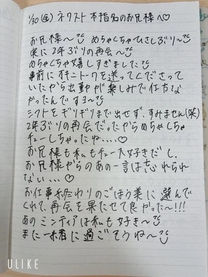 1/30(金) ネクスト 本指名のお兄様へ♡
お兄様〜♡ めちゃくちゃひさしぶり〜♡
実に2年ぶりの再会〜♡
めちゃくちゃ嬉しすぎました♡
事前にオキニトークを送ってくださって
いたから出勤が楽しみで仕方な
かったんです3〜♡
シフトをギリギリまで出せず、すみません(笑)
2年ぶりの再会だったからめちゃくちゃ
チューしちゃったね…♡
お兄様も私もチュー大好きだし、
お兄様からのあの一言はさいられ
ない…♡
お仕事終わりのごほう美に選んで
くれて再会を果たせて良かった〜!!!
あのミンティアは私も好き〜♡
また一緒に過ごそうね〜♡
ULIKE